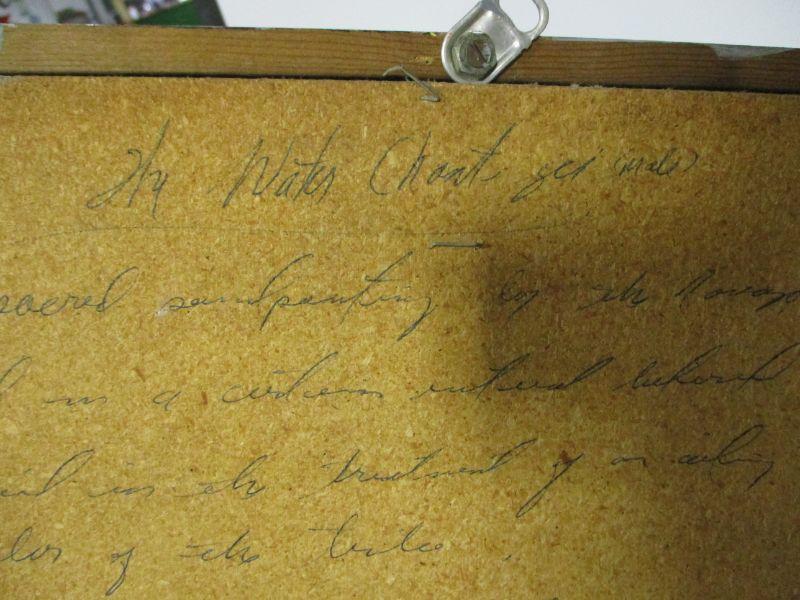 The Water Chant yei (male)
sacred sandpainting by the Navajo
in a curing ritual
used in the treatment of an ailing
of the tribe.